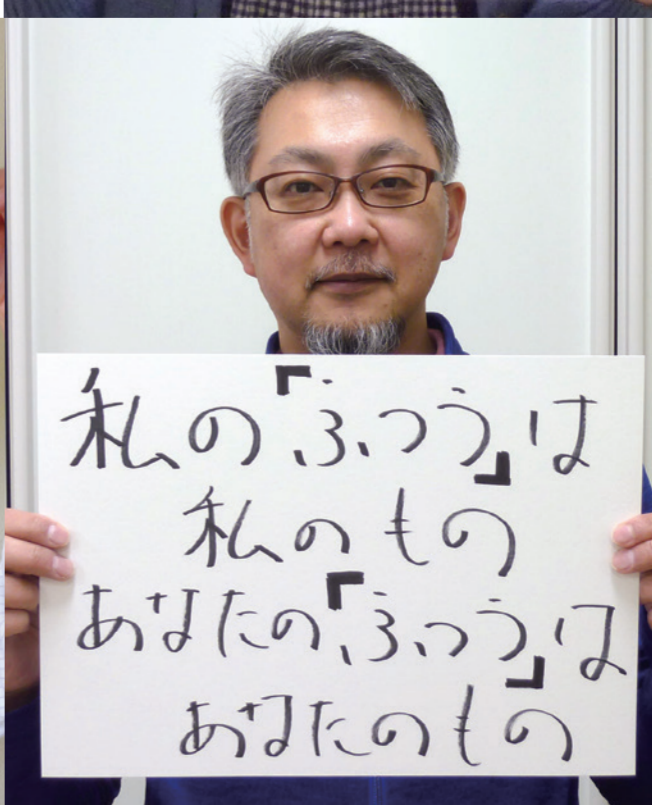 私の「ふつう」は
私のもの
あなたの「ふつう」は
あなたのもの